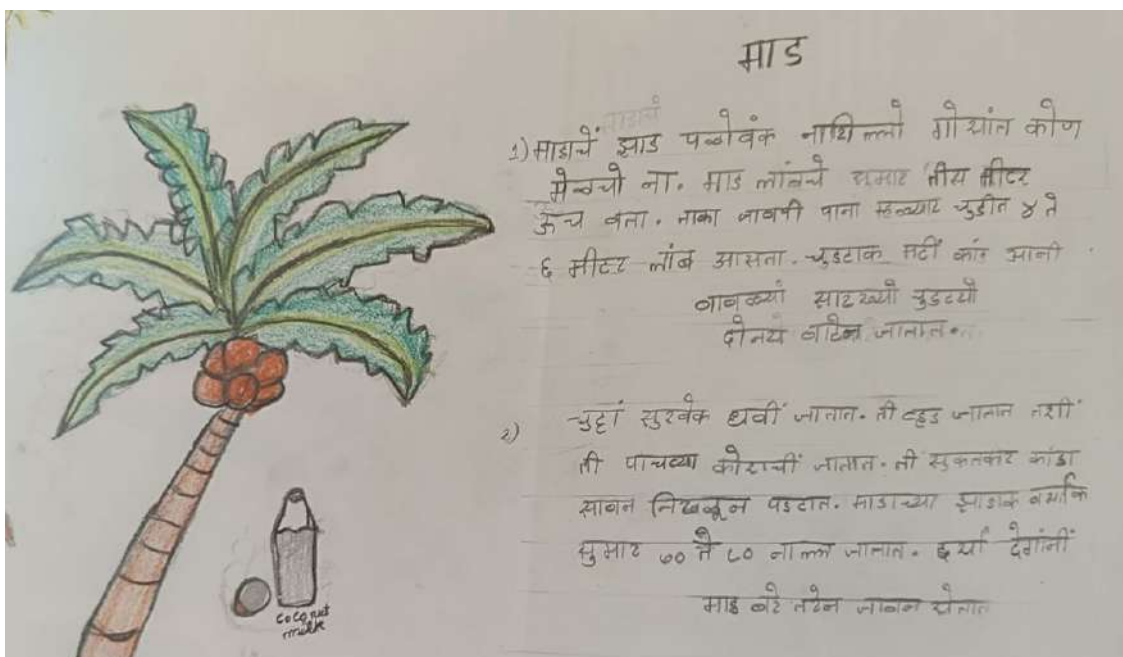 माड
1) माडाचें झाड पळोवंक नाशिल्लो गोंयांत कोण
मेळचो ना. माड लांबचे सुमार तीस मीटर
ऊंच वता. ताका जावपी पाना म्हळ्यार चुडीत ४ ते
६ मीटर लांब आसता. चुडटाक मदीं कांड आनी
दोनय वटेन जातात.
2) चुडटां सुरवेक धवीं जातात. ती व्हड जातात तशीं
ती पाचव्या कोराचीं जातात. ती सुकतकर कांडा
सावन निखळून पडटात. माडाच्या झाडाक वर्साक
सुमार ७० ते ८० नाल्ल जातात. दर्या देगांनीं
माड बरे तरेन जावन येतात
coconut
milk